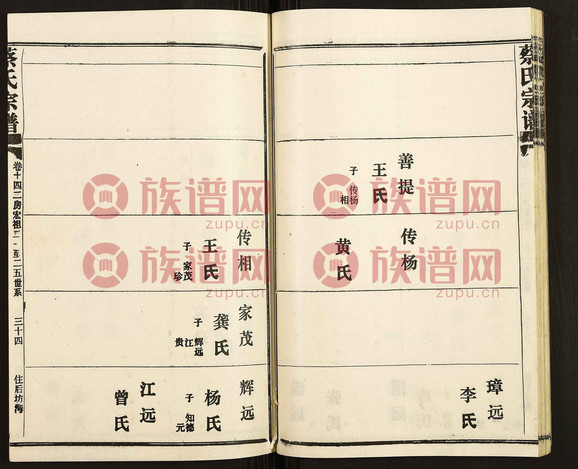 蔡氏宗谱
善提
王氏
子 传杨
相
传杨
黄氏
璋远
李氏
传相
王氏
子 家茂
珍
家茂
龚氏
子 辉远
江
贵
辉远
杨氏
子 知德
元
江远
曾氏
蔡氏宗谱
卷十四二房宏祖二一至二五世系
三十四
住后坊湾
族谱网
zupu.cn
族谱网
zupu.cn
族谱网
zupu.cn
族谱网
zupu.cn